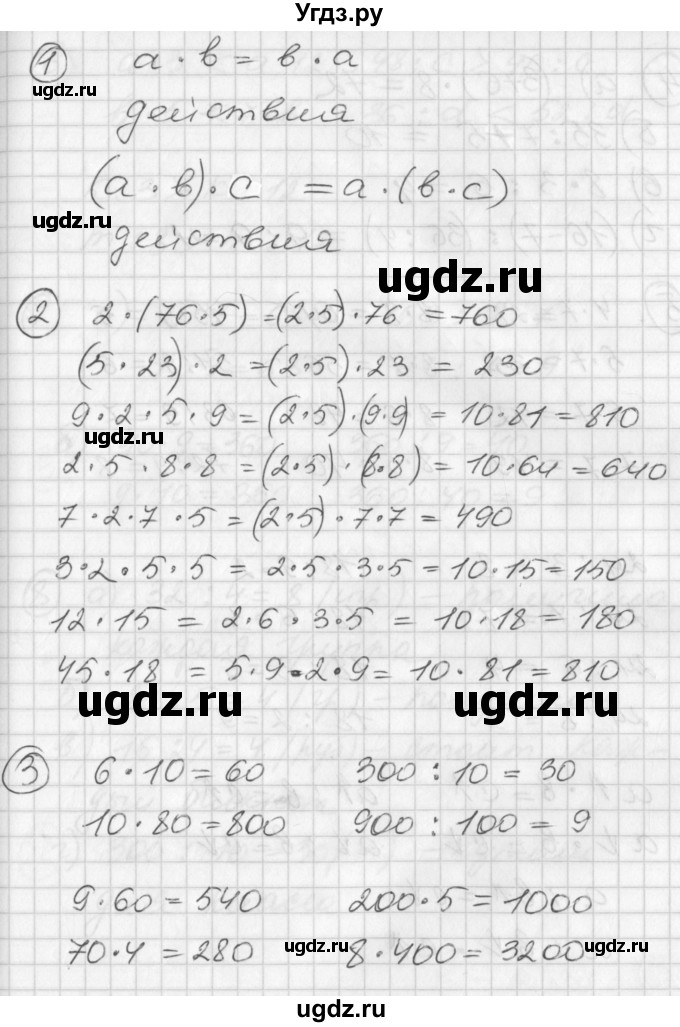 Угдз.ру
① a · в = в · a
ugdz.ru
действия
(a · в) · c = a · (в · c)
ugdz.ru
действия
ugdz.ru
② 2 · (76 · 5) = (2 · 5) · 76 = 760
(5 · 23) · 2 = (2 · 5) · 23 = 230
9 · 2 · 5 · 9 = (2 · 5) · (9 · 9) = 10 · 81 = 810
ugdz.ru
2 · 5 · 8 · 8 = (2 · 5) · (8 · 8) = 10 · 64 = 640
7 · 2 · 7 · 5 = (2 · 5) · 7 · 7 = 490
3 · 2 · 5 · 5 = 2 · 5 · 3 · 5 = 10 · 15 = 150
12 · 15 = 2 · 6 · 3 · 5 = 10 · 18 = 180
45 · 18 = 5 · 9 · 2 · 9 = 10 · 81 = 810
ugdz.ru ugdz.ru
③ 6 · 10 = 60 300 : 10 = 30
10 · 80 = 800 900 : 100 = 9
9 · 60 = 540 200 · 5 = 1000
70 · 4 = 280 8 · 400 = 3200
ugdz.ru ugdz.ru
ugdz.ru